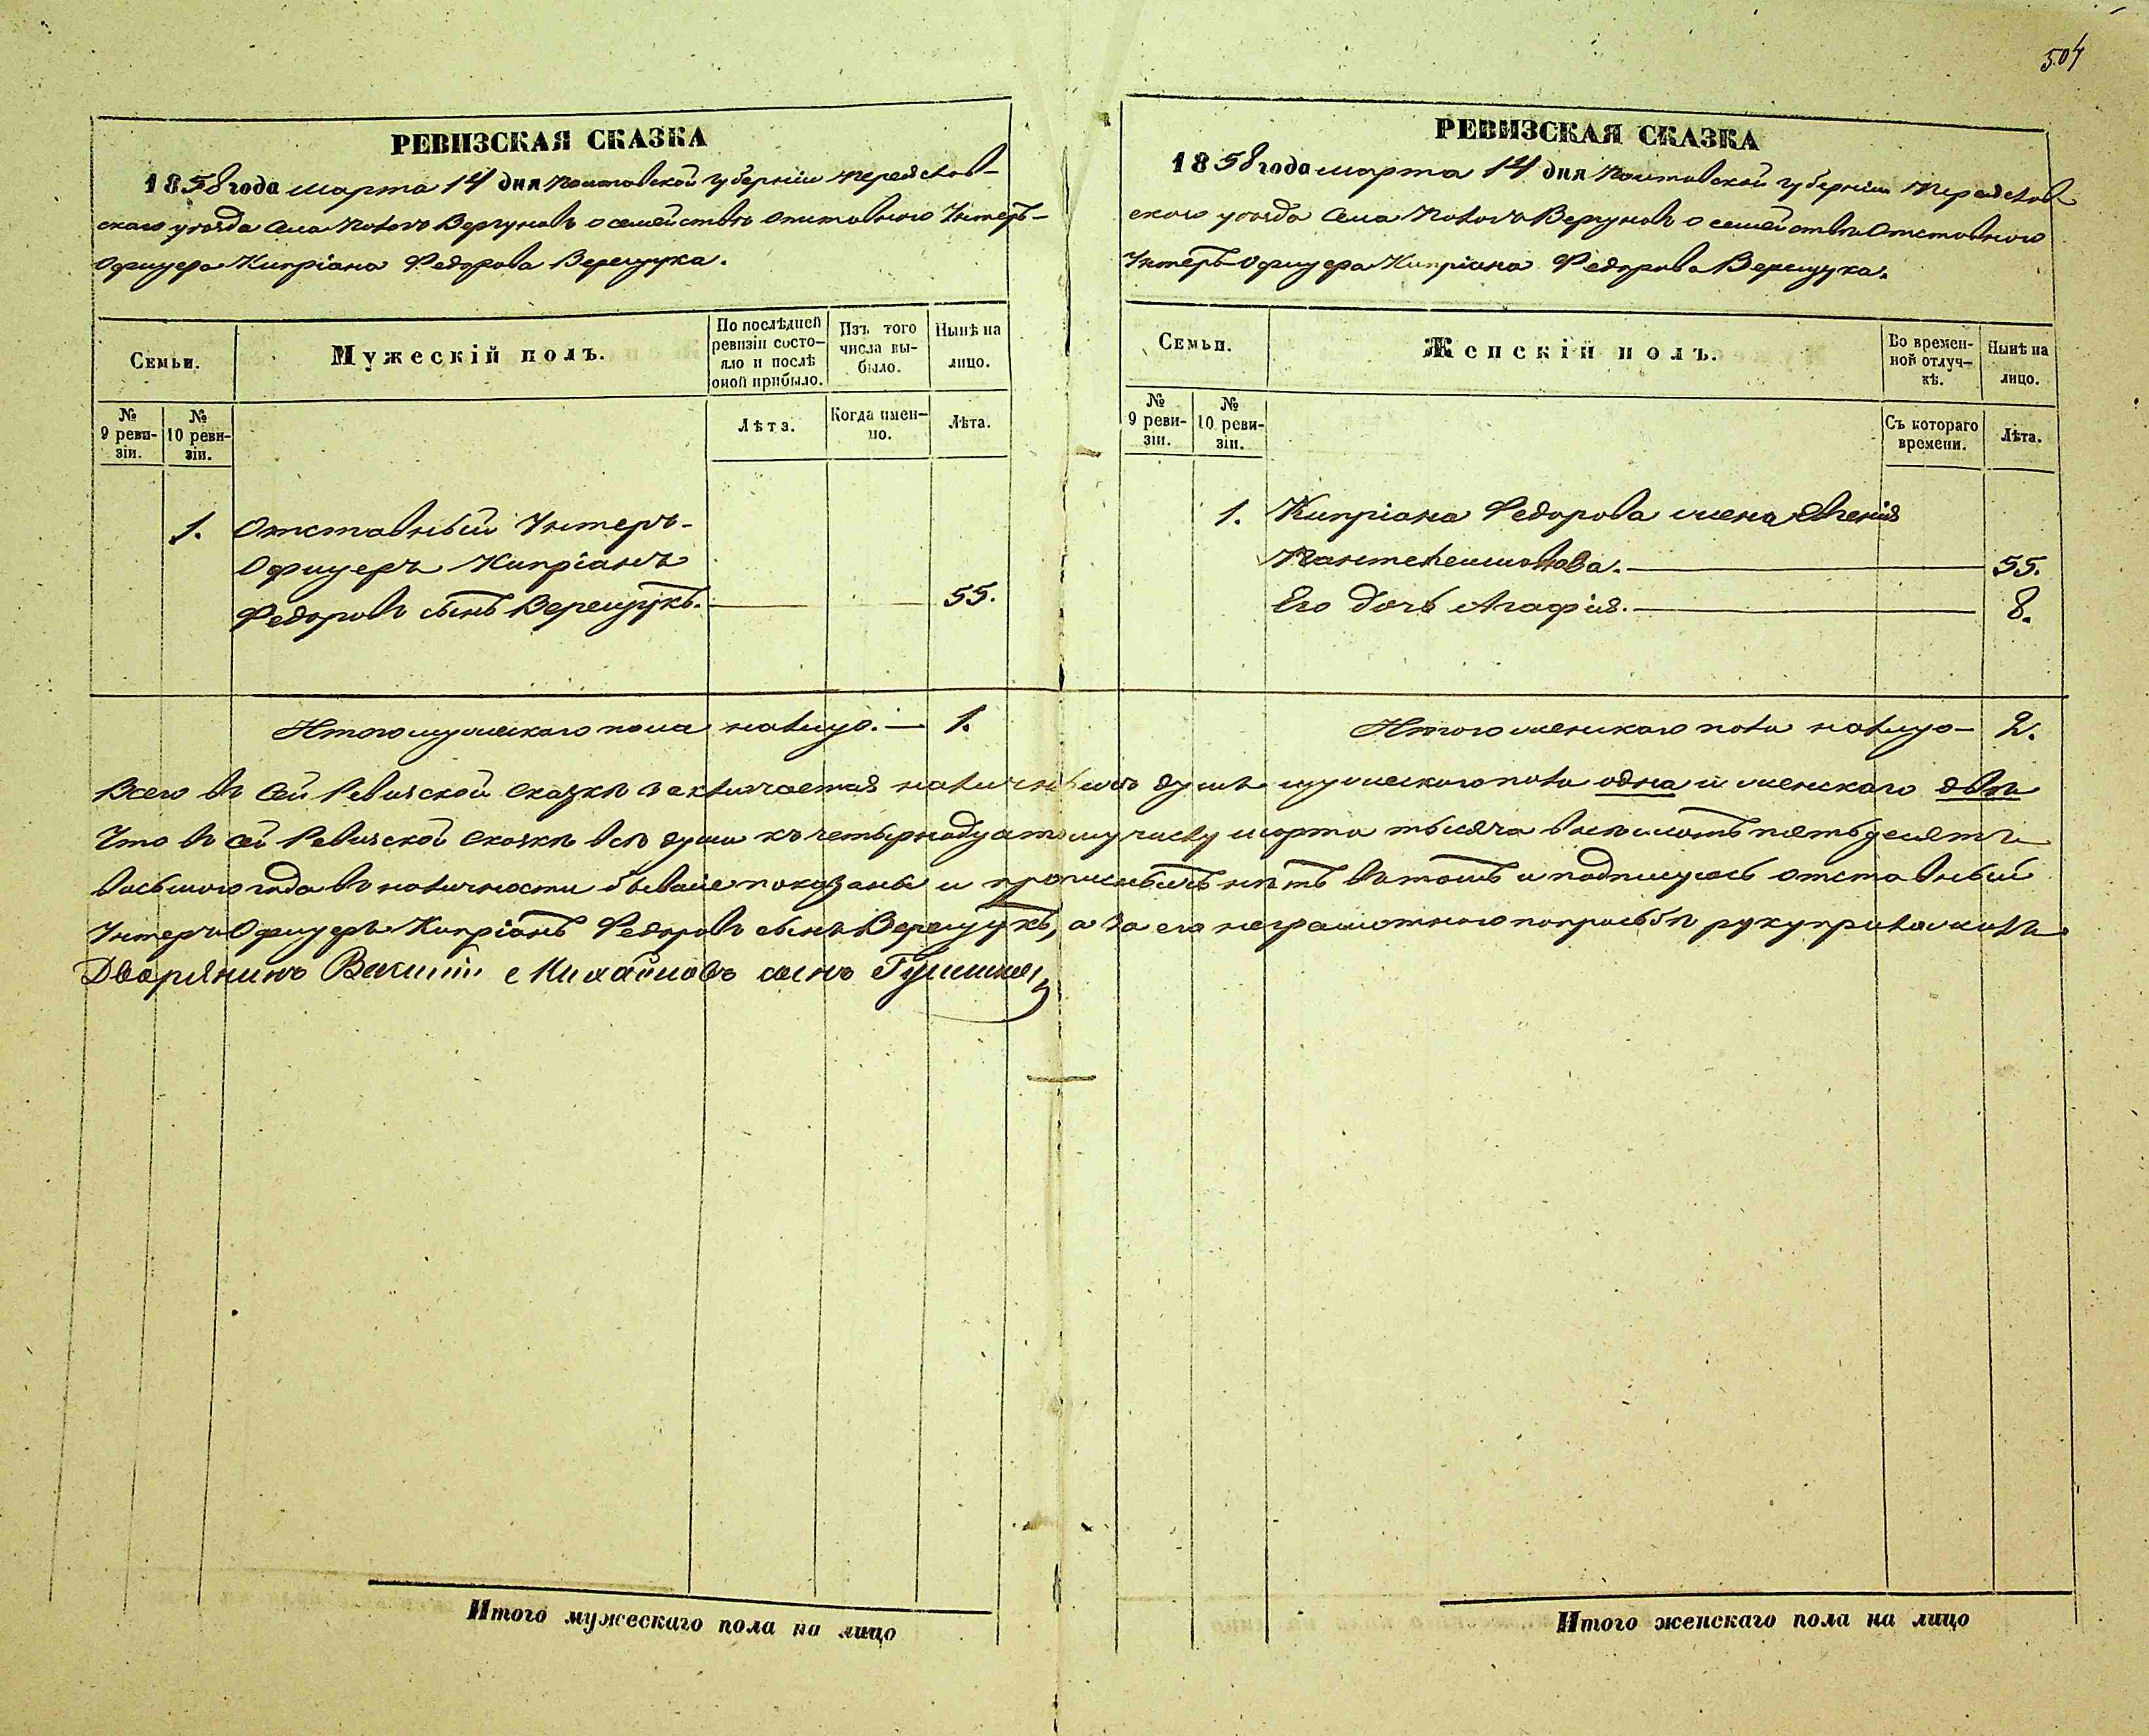 504
РЕВИЗСКАЯ СКАЗКА
1858 года марта 14 дня Полтавской губерніи Переяслов-
скаго уезда села Полого Вергуновъ о семействѣ отставного Унтеръ-
Офицера Кипріана Федорова Верещука.
Семьи.
Мужескій полъ.
По послѣдней ревизіи состояло и послѣ оной прибыло.
Изъ того числа выбыло.
Нынѣ на лицо.
№ 9 ревизіи.
№ 10 ревизіи.
Лѣта.
Когда именно.
Лѣта.
1. Отставный Унтеръ-
Офицеръ Кипріанъ
Федоровъ сынъ Верещукъ. 55.
Итого мужескаго пола налицо. — 1.
РЕВИЗСКАЯ СКАЗКА
1858 года марта 14 дня Полтавской губерніи Переяслов-
скаго уезда села Полого Вергуновъ о семействѣ Отставного
Унтеръ-Офицера Кипріана Федорова Верещука.
Семьи.
Женскій полъ.
Во временной отлучкѣ.
Нынѣ на лицо.
№ 9 ревизіи.
№ 10 ревизіи.
Съ котораго времени.
Лѣта.
1. Кипріана Федорова жена Евгенія
Пантелеимонова. 55.
Его дочь Агафія. 8.
Итого женскаго пола налицо — 2.
Всего въ сей Ревизской сказкѣ заключается наличныхъ душъ мужескаго пола одна и женскаго двѣ
Что въ сей Ревизской сказкѣ всѣ души къ четырнадцатому числу марта тысяча восемьсотъ пятьдесятъ
восьмого года въ наличности бывшіе показаны и прописныхъ нѣтъ въ томъ и подпишусь отставный
Унтеръ Офицеръ Кипріанъ Федоровъ сынъ Верещукъ, а за его неграмотного попросьбѣ руку приложилъ
Дворянинъ Василій Михайловъ сынъ
Итого мужескаго пола на лицо
Итого женскаго пола на лицо